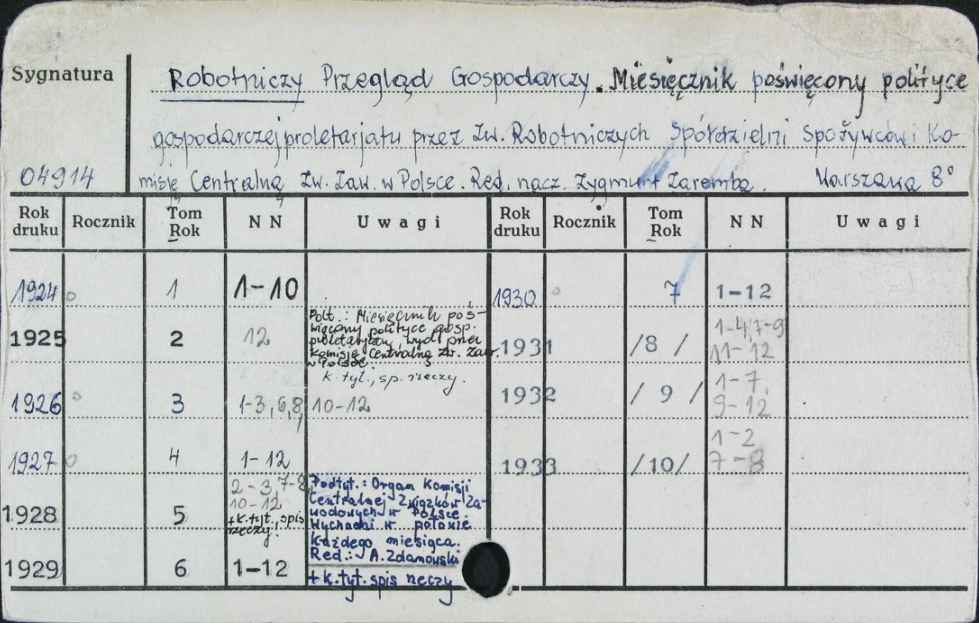 Sygnatura
Robotniczy Przegląd Gospodarczy. Miesięcznik poświęcony polityce
gospodarczej proletarjatu przez Zw. Robotniczych Spółdzielni Spożywców i Ko-
04914 misję Centralną Zw. Zaw. w Polsce. Red. nacz. Zygmunt Zaremba. Warszawa 8°
Rok druku Rocznik Tom Rok NN Uwagi Rok druku Rocznik Tom Rok NN Uwagi
1924 1 1-10 1930 7 1-12
1925 2 12
Podt.: Miesięcznik poś-
więcony polityce gosp.
proletarjatu, wyd. przez
Komisję Centralną Zw. Zaw.
w Polsce
k. tyt., sp. rzeczy.
1931 /8/ 1-4, 7-9
11-12
1926 3 1-3, 6, 8, 10-12
1932 /9/ 1-7,
9-12
1927 4 1-12
1933 /10/ 1-2
7-8
1928 5 2-3, 7-8
10-12
+k.tyt., spis
rzeczy.
Podtyt.: Organ Komisji
Centralnej Związków Za-
wodowych w Polsce
Wychodzi w połowie
każdego miesiąca.
Red.: A. Zdanowski
1929 6 1-12 + k. tyt. spis rzeczy